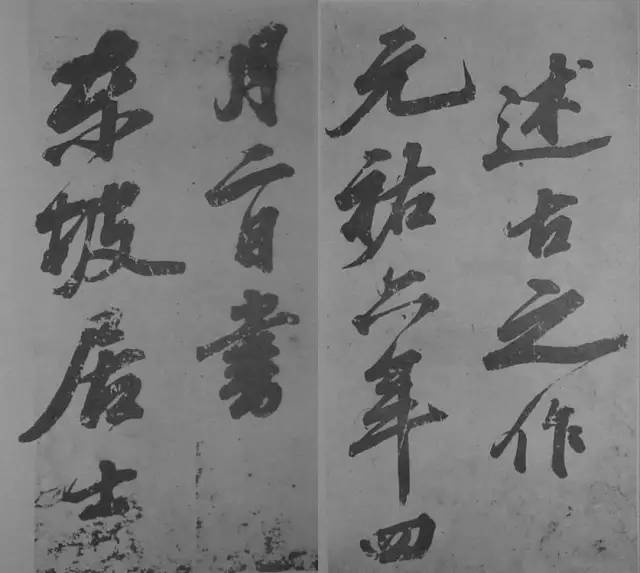 述古之作
元祐六年四
月二日書
東坡居士